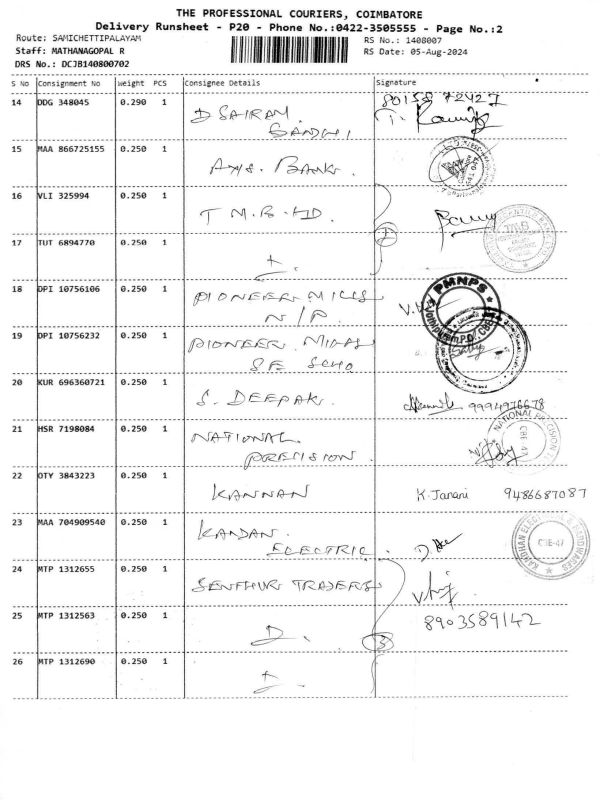 THE PROFESSIONAL COURIERS, COIMBATORE
Delivery Runsheet - P20 - Phone No.:0422-3505555 - Page No.:2
Route: SAMICHETTIPALAYAM
RS No.: 1408007
Staff: MATHANAGOPAL R
RS Date: 05-Aug-2024
DRS No.: DCJB140800702
S No Consignment No Weight PCS Consignee Details Signature
14 DDG 348045 0.290 1 D SAIRAM
GANDHI
80158 72427
15 MAA 866725155 0.250 1 Axis. BANK.
16 VLI 325994 0.250 1 T M.B. LTD.
17 TUT 6894770 0.250 1
2
18 DPI 10756106 0.250 1 PIONEER MILLS
N/P.
PMNPS
19 DPI 10756232 0.250 1 PIONEER MILLS
SE SCHO
20 KUR 696360721 0.250 1 S. DEEPAK.
9994976678
21 HSR 7198084 0.250 1 NATIONAL
PRECISION.
NATIONAL PRECISION
CBE-47
22 OTY 3843223 0.250 1 KANNAN K. Janani 9486687087
23 MAA 704909540 0.250 1 KANDAN
ELECTRIC.
KANDHAN ELECTRICAL & HARDWARES
CBE-47
24 MTP 1312655 0.250 1 SENTHUR TRADERS
25 MTP 1312563 0.250 1
8903589142
3
26 MTP 1312690 0.250 1